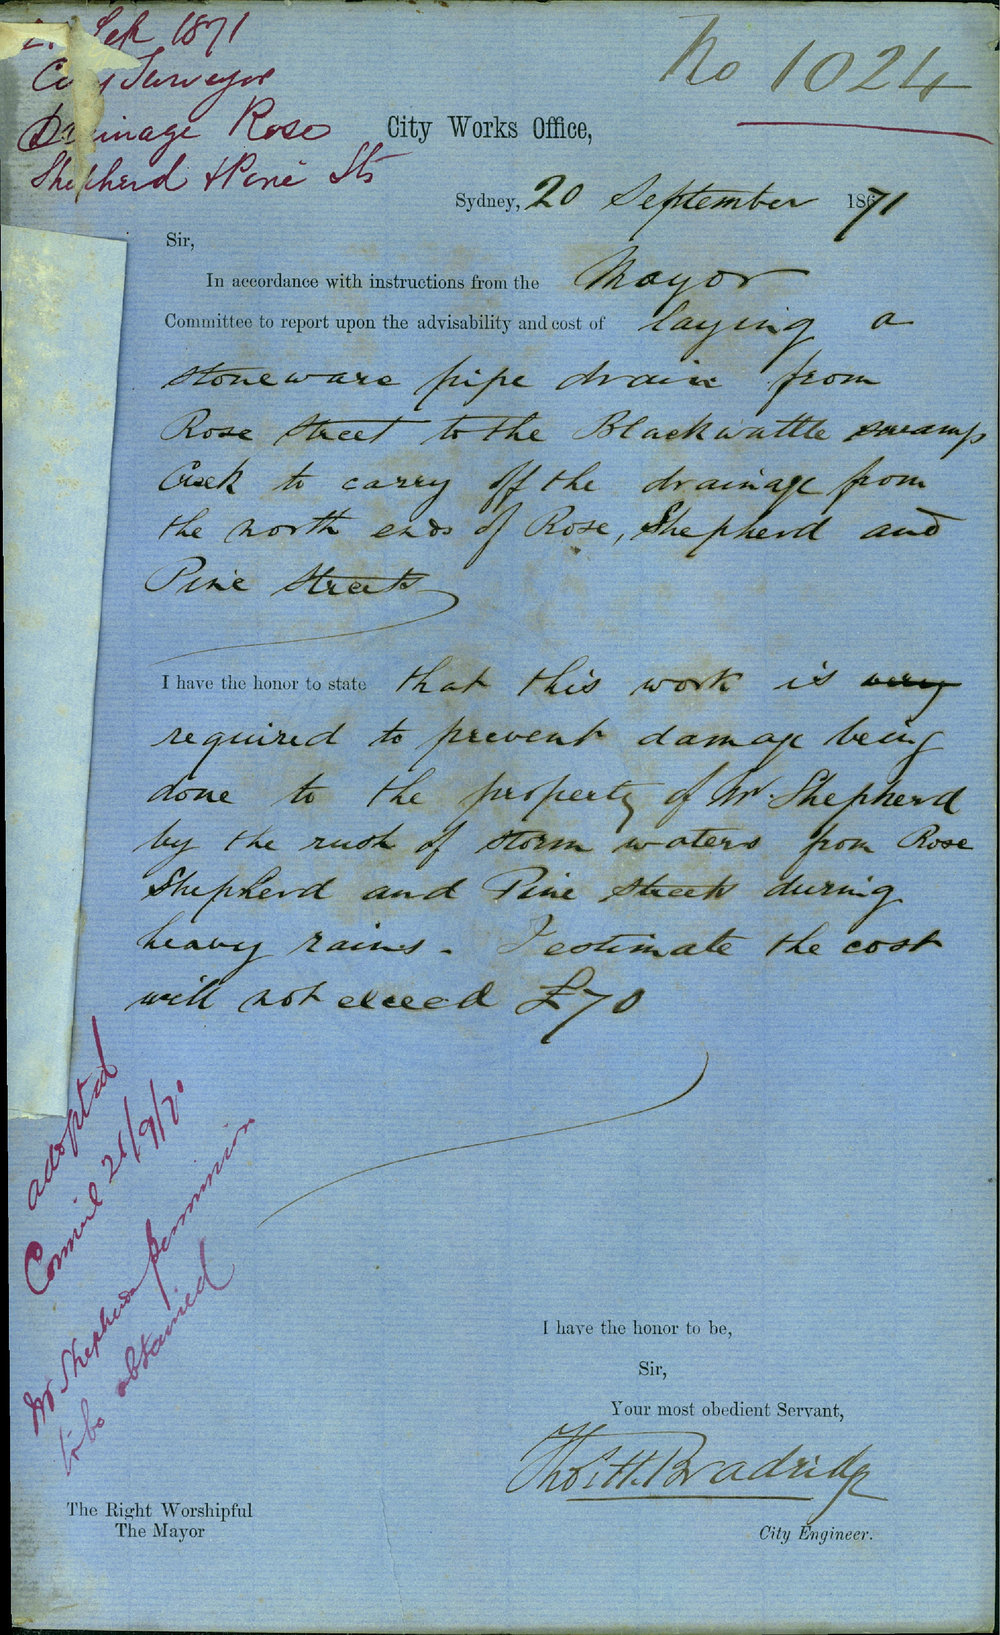 Sep 1871
City Surveyor
Drainage Rose
Shepherd & Pine Sts
No 1024
City Works Office,
Sydney, 20 September 1871
Sir,
In accordance with instructions from the Mayor
Committee to report upon the advisability and cost of laying a
stoneware pipe drain from
Rose Street to the Blackwattle swamp
Creek to carry off the drainage from
the north ends of Rose, Shepherd and
Pine Streets
I have the honor to state that this work is very
required to prevent damage being
done to the property of Mr. Shepherd
by the rush of storm waters from Rose
Shepherd and Pine Streets during
heavy rains. I estimate the cost
will not exceed £70
adopted
Council 26/9/71
Mr Shepherds permission
to be obtained
I have the honor to be,
Sir,
Your most obedient Servant,
Thos. H. Bradridge
City Engineer.
The Right Worshipful
The Mayor